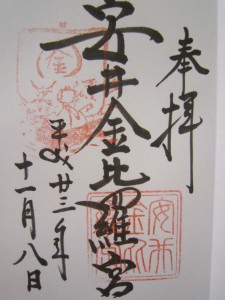 奉拝
安井金比羅宮
平成廿三年
十一月八日
金